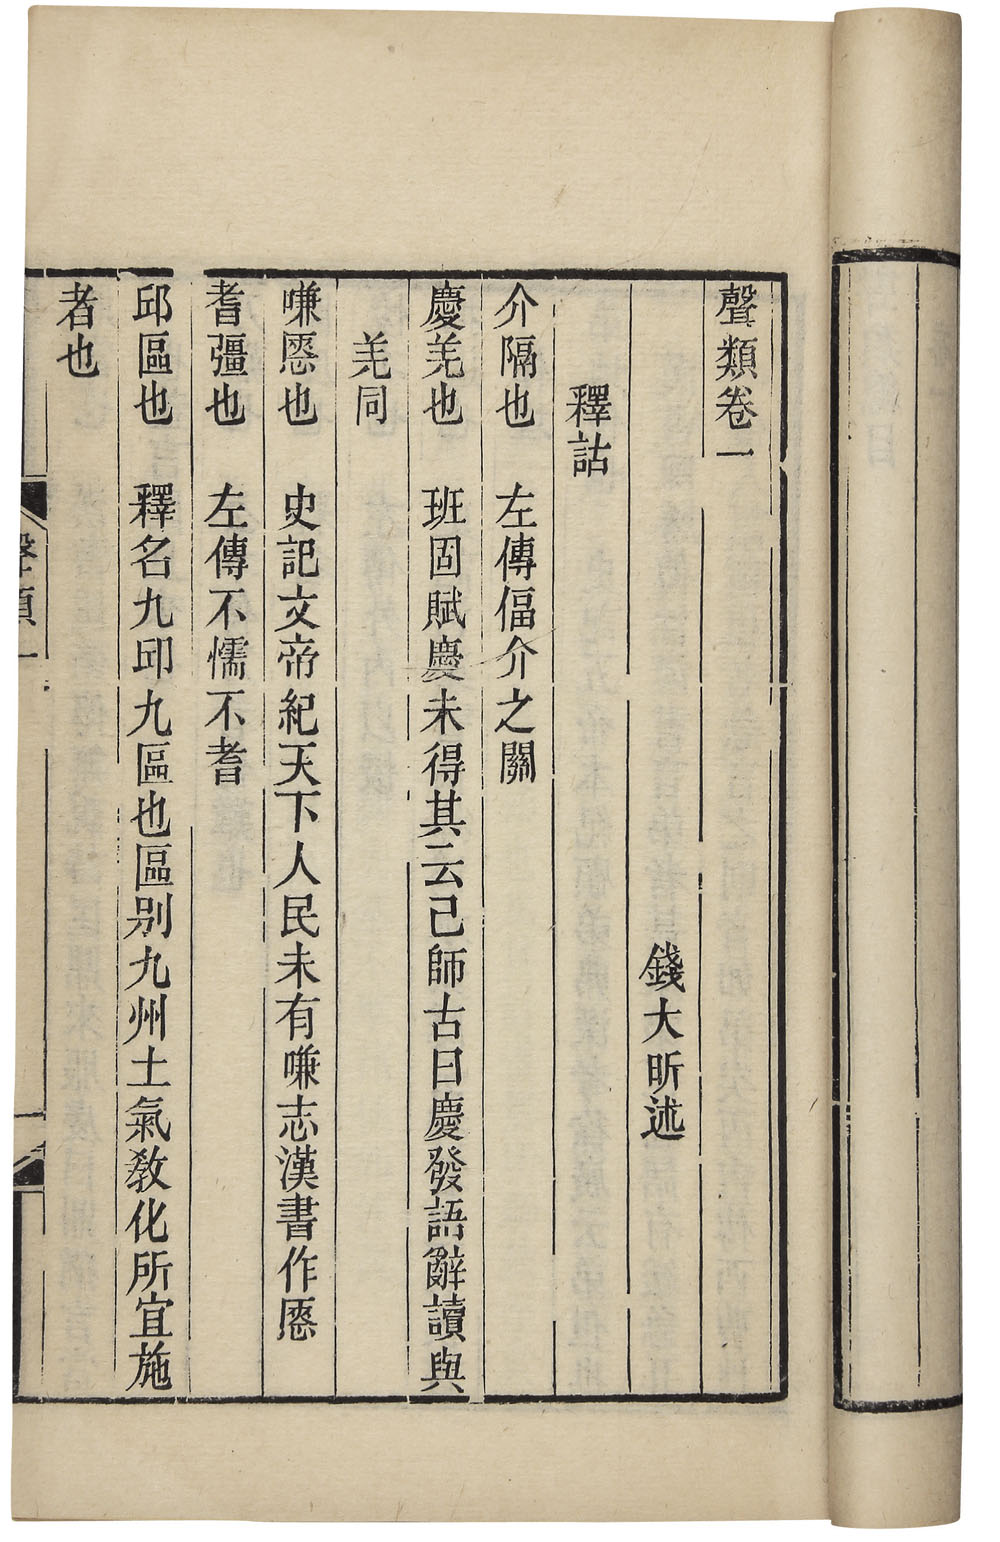 聲類卷一
錢大昕述
釋詁
介隔也　左傳偪介之關
慶羌也　班固賦慶未得其云己師古曰慶發語辭讀與
羌同
嗛愿也　史記文帝紀天下人民未有嗛志漢書作愿
耆彊也　左傳不懦不耆
邱區也　釋名九邱九區也區別九州土氣敎化所宜施
者也
聲類一